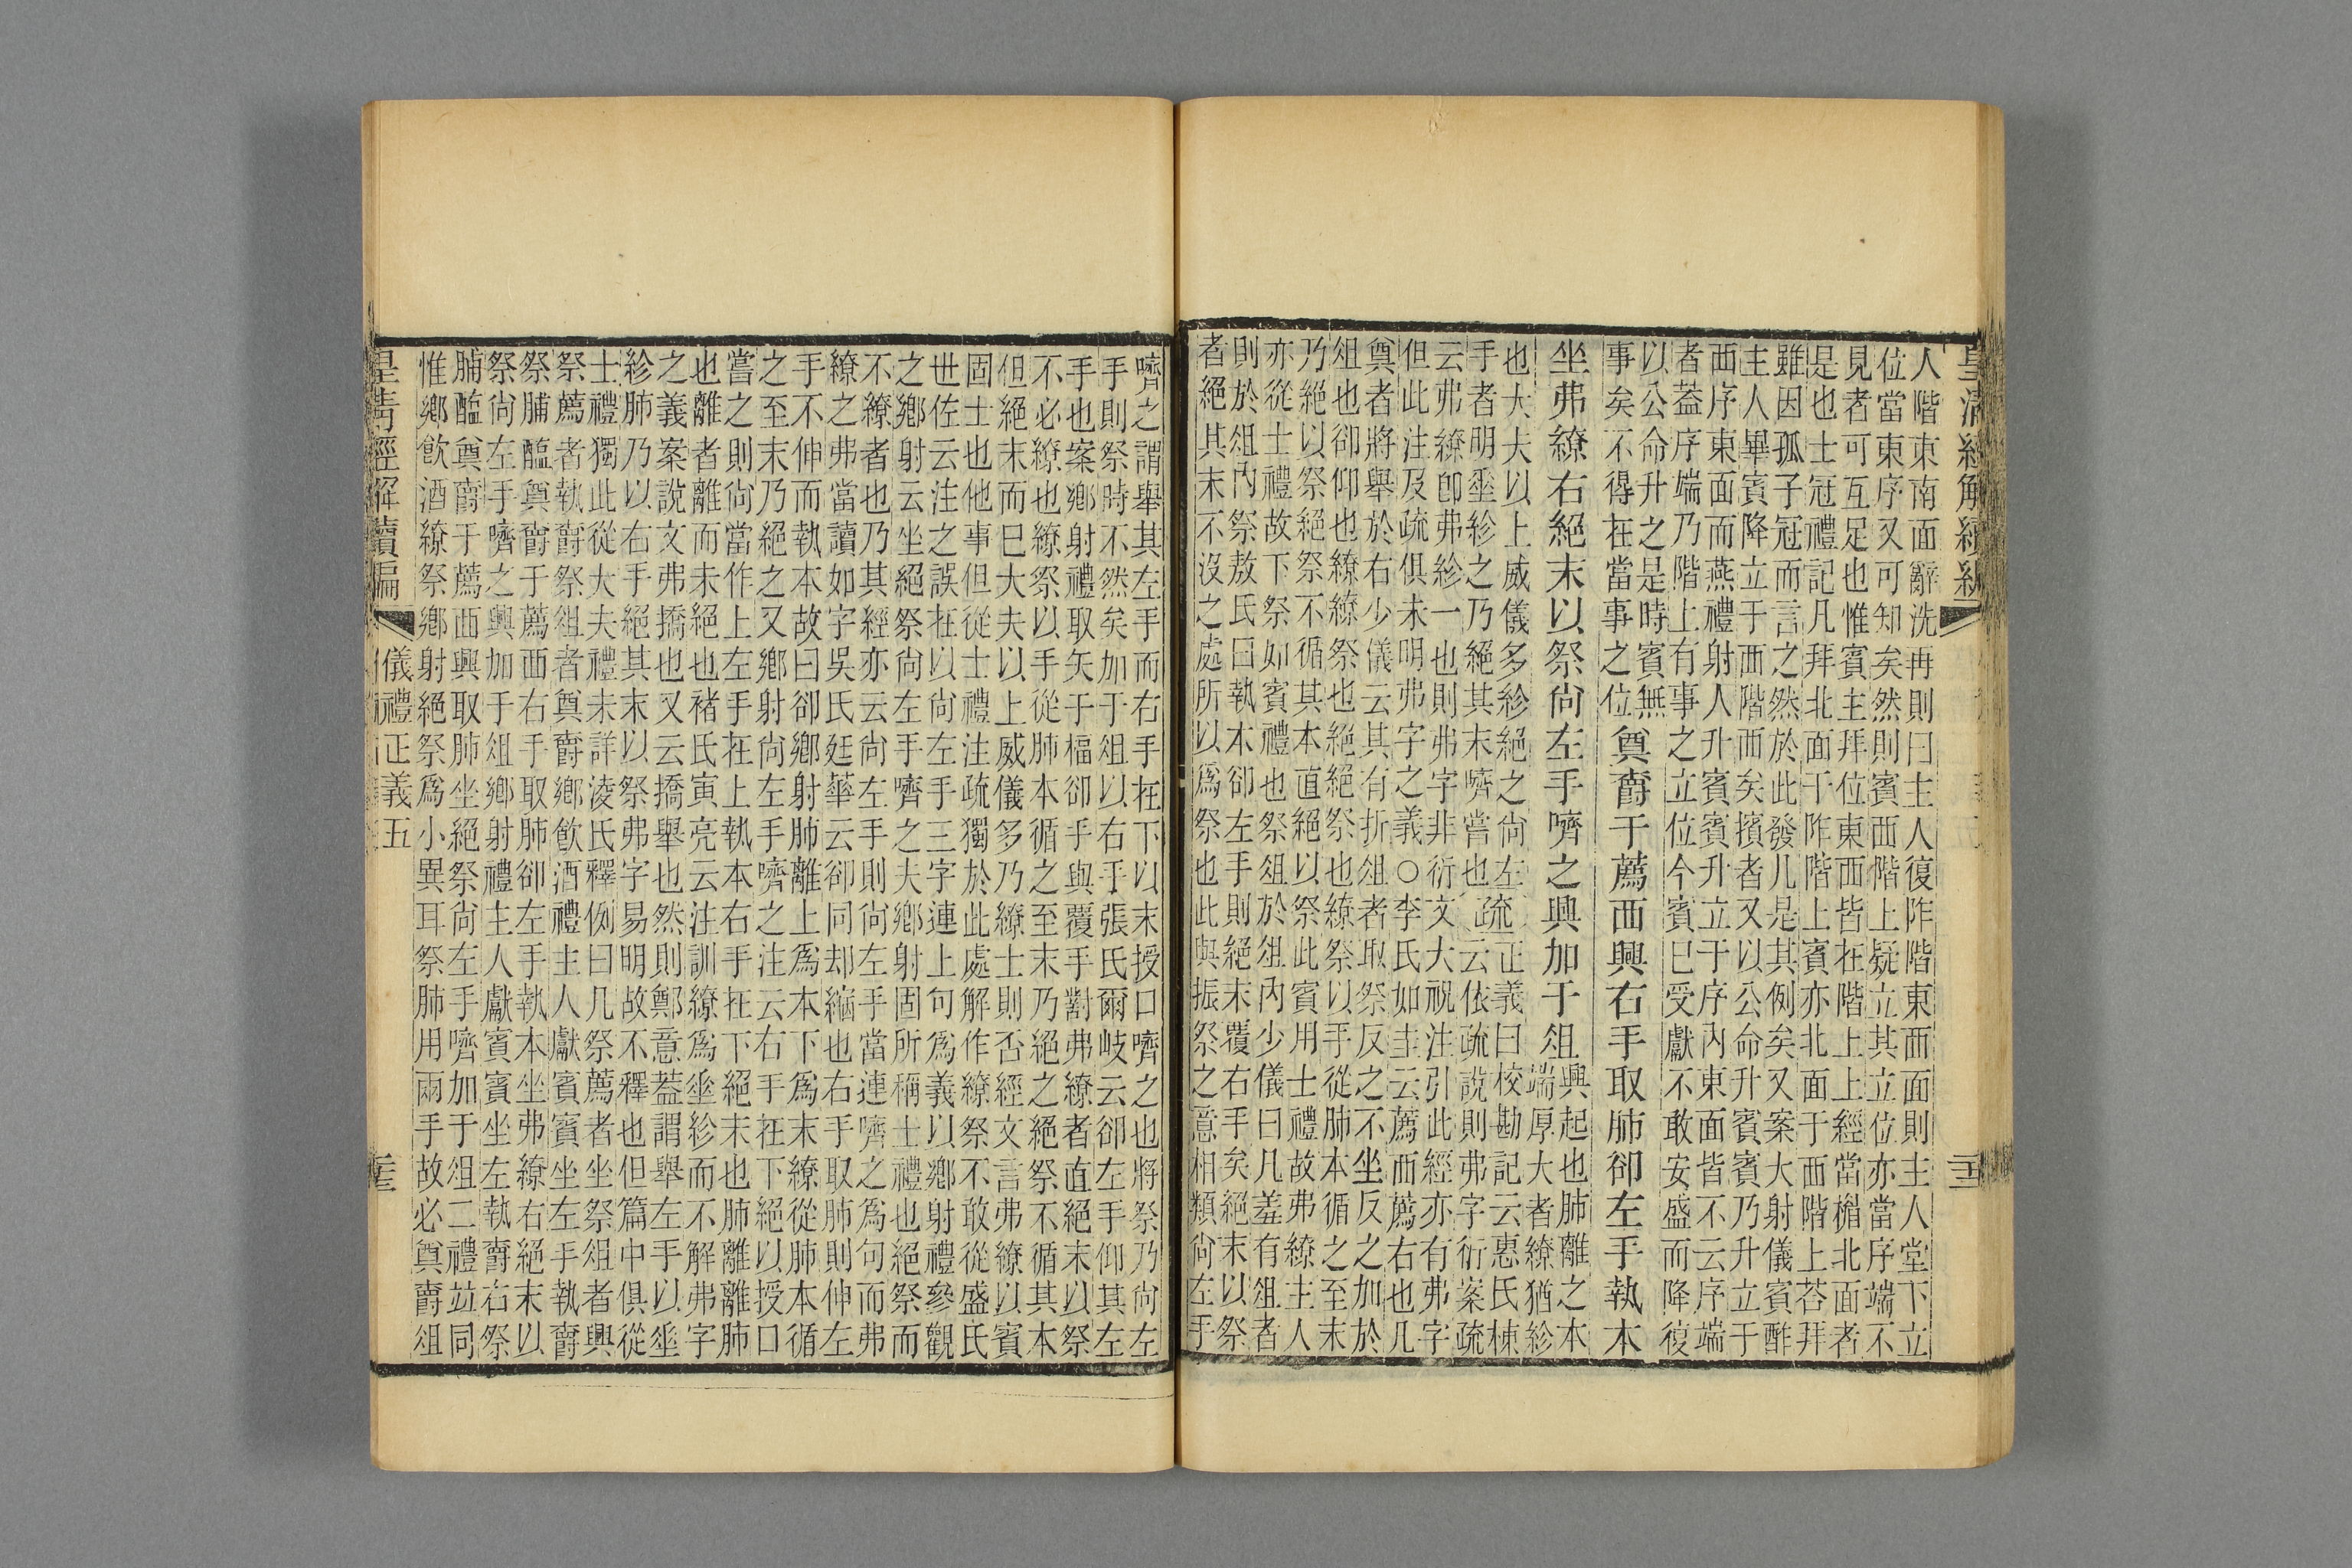 皇清經解續編
人階東南面辭洗再則曰主人復阼階東西面則主人堂下立
位當東序又可知矣然則賓西階上疑立其立位亦當序端不
見者可互足也惟賓主拜位東西皆在階上上經當楣北面者
是也士冠禮記凡拜北面于阼階上賓亦北面于西階上荅拜
雖因孤子冠而言之然於此發凡是其例矣又案大射儀賓酢
主人畢賓降立于西階西矣擯者又以公命升賓賓乃升立于
西序東面而燕禮射人升賓賓升立于序內東面皆不云序端
者葢序端乃階上有事之立位今賓已受獻不敢安盛而降復
以公命升之是時賓無
事矣不得在當事之位
奠爵于薦西興右手取肺卻左手執本
坐弗繚右絕末以祭尚左手嚌之興加于俎
興起也肺離之本
端厚大者繚猶紾
也大夫以上威儀多紾絕之尚左
手者明垂紾之乃絕其末嚌嘗也
疏
正義曰校勘記云惠氏棟
云依疏說則弗字衍案疏
云弗繚卽弗紾一也則弗字非衍文大祝注引此經亦有弗字
但此注及疏俱未明弗字之義○李氏如圭云薦西薦右也凡
奠者將舉於右少儀云其有折俎者取祭反之不坐反之加於
俎也卻仰也繚繚祭也絕絕祭也繚祭以手從肺本循之至末
乃絕以祭絕祭不循其本直絕以祭此賓用士禮故弗繚主人
亦從士禮故下祭如賓禮也祭俎於俎內少儀曰凡羞有俎者
則於俎內祭敖氏曰執本卻左手則絕末覆右手矣絕末以祭
者絕其末不沒之處所以爲祭也此與振祭之意相類尚左手
嚌之謂舉其左手而右手在下以末授口嚌之也將祭乃尚左
手則祭時不然矣加于俎以右手張氏爾岐云卻左手仰其左
手也案鄉射禮取矢于楅卻手與覆手對弗繚者直絕末以祭
不必繚也繚祭以手從肺本循之至末乃絕之絕祭不循其本
但絕末而已大夫以上威儀多乃繚士則否經文言弗繚以賓
固士也他事但從士禮注疏獨於此處解作繚祭不敢從盛氏
世佐云注之誤在以尚左手三字連上句爲義以鄉射禮參觀
之鄉射云坐絕祭尚左手嚌之夫鄉射固所稱士禮也絕祭而
不繚者也乃其經亦云尚左手則尚左手當連嚌之爲句而弗
繚之弗當讀如字吳氏廷華云卻同却緧也右手取肺則伸左
手不伸而執本故曰卻鄉射肺離上爲本下爲末繚從肺本循
之至末乃絕之又鄉射尚左手嚌之注云右手在下絕以授口
嘗之則尚當作上左手在上執本右手在下絕末也肺離離肺
也離者離而未絕也褚氏寅亮云注訓繚爲垂紾而不解弗字
之義案說文弗撟也又云撟舉也然則鄭意葢謂舉左手以垂
紾肺乃以右手絕其末以祭弗字易明故不釋也但篇中俱從
士禮獨此從大夫禮未詳淩氏釋例曰凡祭薦者坐祭俎者興
祭薦者執爵祭俎者奠爵鄉飲酒禮主人獻賓賓坐左手執爵
祭脯醢奠爵于薦西右手取肺卻左手執本坐弗繚右絕末以
祭尚左手嚌之興加于俎鄉射禮主人獻賓賓坐左執爵右祭
脯醢奠爵于薦西興取肺坐絕祭尚左手嚌加于俎二禮竝同
惟鄉飲酒繚祭鄉射絕祭爲小異耳祭肺用兩手故必奠爵俎
皇清經解續編
儀禮正義五